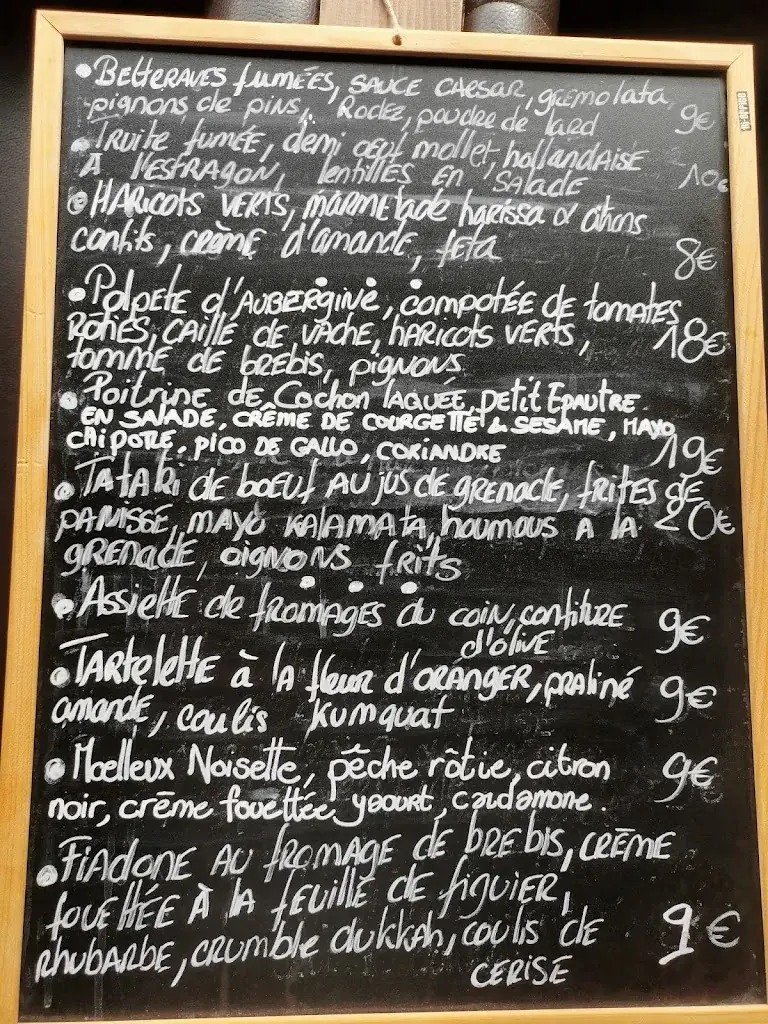 • Betteraves fumées, sauce caesar, gremolata,
pignons de pins, Rodez, poudre de lard 9€
• Truite fumée, demi oeuf mollet, hollandaise
à l'estragon, lentilles en salade 10€
• Haricots verts, marmelade harissa & citrons
confits, crème d'amande, feta 8€
• Polpete d'aubergine, compotée de tomates
rôties, caillé de vache, haricots verts, 18€
tomme de brebis, pignons
• Poitrine de Cochon laquée, petit Epautre
en salade, crème de courgette & sesame, mayo
chipotle, pico de gallo, coriandre 19€
• Tataki de boeuf au jus de grenade, frites de
panisse, mayo kalamata, houmous a la 20€
grenade, oignons frits
• Assiette de fromages du coin, confiture 9€
d'olive
• Tartelette à la fleur d'oranger, praliné 9€
amande, coulis kumquat
• Moelleux Noisette, pêche rôtie, citron 9€
noir, crème fouettée yaourt, cardamone.
• Fiadone au fromage de brebis, crème
fouettée à la feuille de figuier,
rhubarbe, crumble dukkah, coulis de 9€
cerise